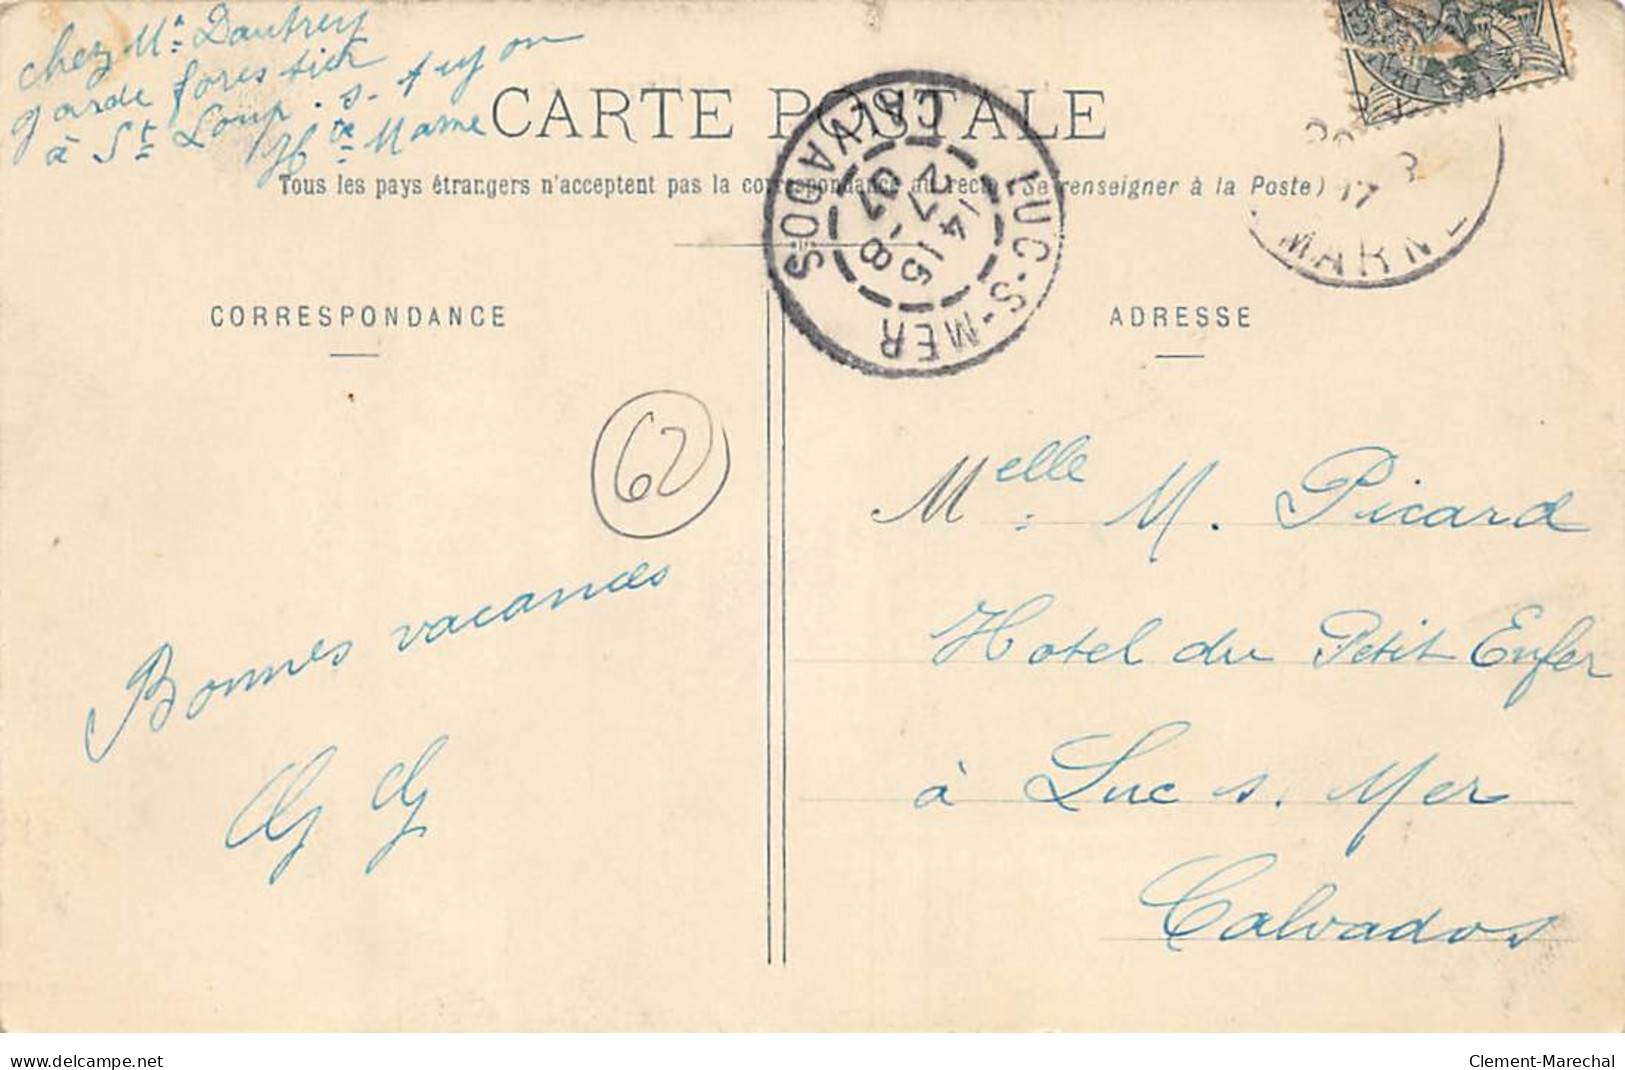 chez Mr Dautrey
garde forestier
à St Loup. s. Aujon
Hte Marne
CARTE POSTALE
Tous les pays étrangers n'acceptent pas la correspondance au recto (Se renseigner à la Poste)
LUC-S-MER
CALVADOS
14 15
27-8
07
MARNE
CORRESPONDANCE
ADRESSE
62
Melle M. Picard
Hotel du Petit Enfer
à Luc s. Mer
Calvados
Bonnes vacances
www.delcampe.net
Clement-Marechal